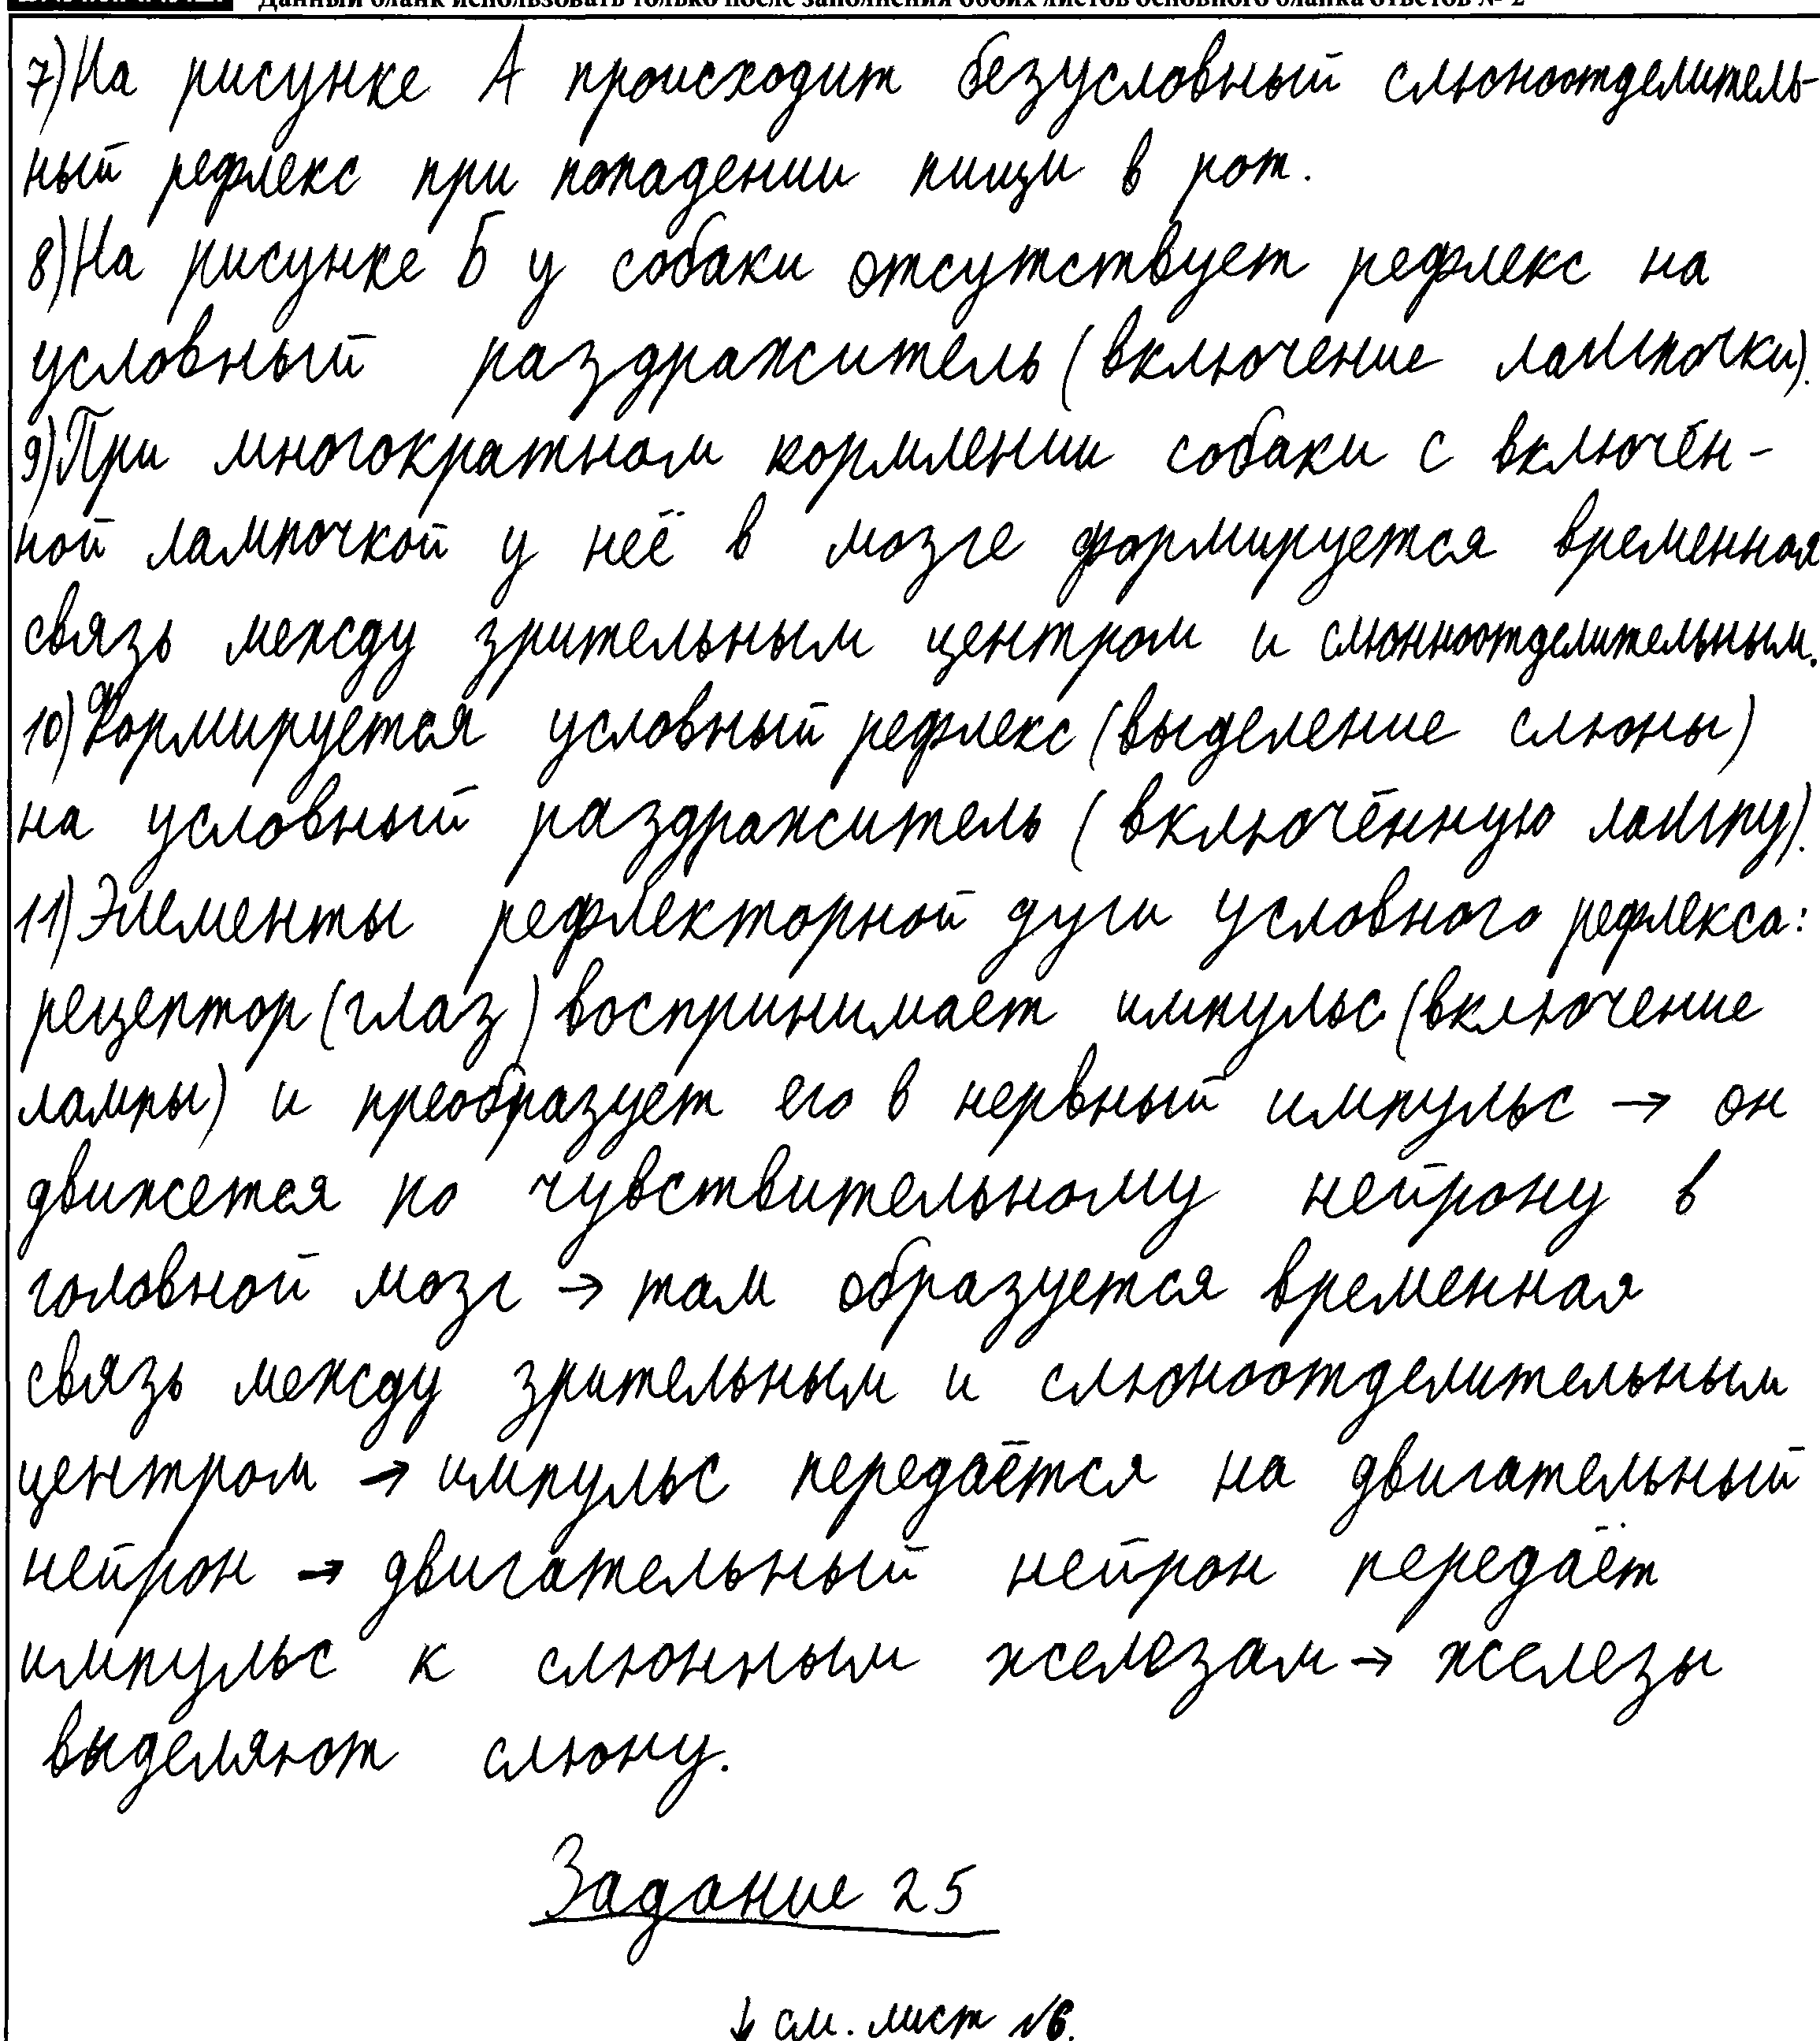 Данный бланк использовать только после заполнения обоих листов основного бланка ответов № 2
7) На рисунке А происходит безусловный слюноотделитель-
ный рефлекс при попадении пищи в рот.
8) На рисунке Б у собаки отсутствует рефлекс на
условный раздражитель (включение лампочки).
9) При многократном кормлении собаки с включён-
ной лампочкой у неё в мозге формируется временная
связь между зрительным центром и слюнноотделительным.
10) Формируется условный рефлекс (выделение слюны)
на условный раздражитель (включённую лампу).
11) Элементы рефлекторной дуги условного рефлекса:
рецептор (глаз) воспринимает импульс (включение
лампы) и преобразует его в нервный импульс → он
движется по чувствительному нейрону в
головной мозг → там образуется временная
связь между зрительным и слюноотделительным
центром → импульс передаётся на двигательный
нейрон → двигательный нейрон передаёт
импульс к слюнным железам → железы
выделяют слюну.
Задание 25
↓ см. лист №6.